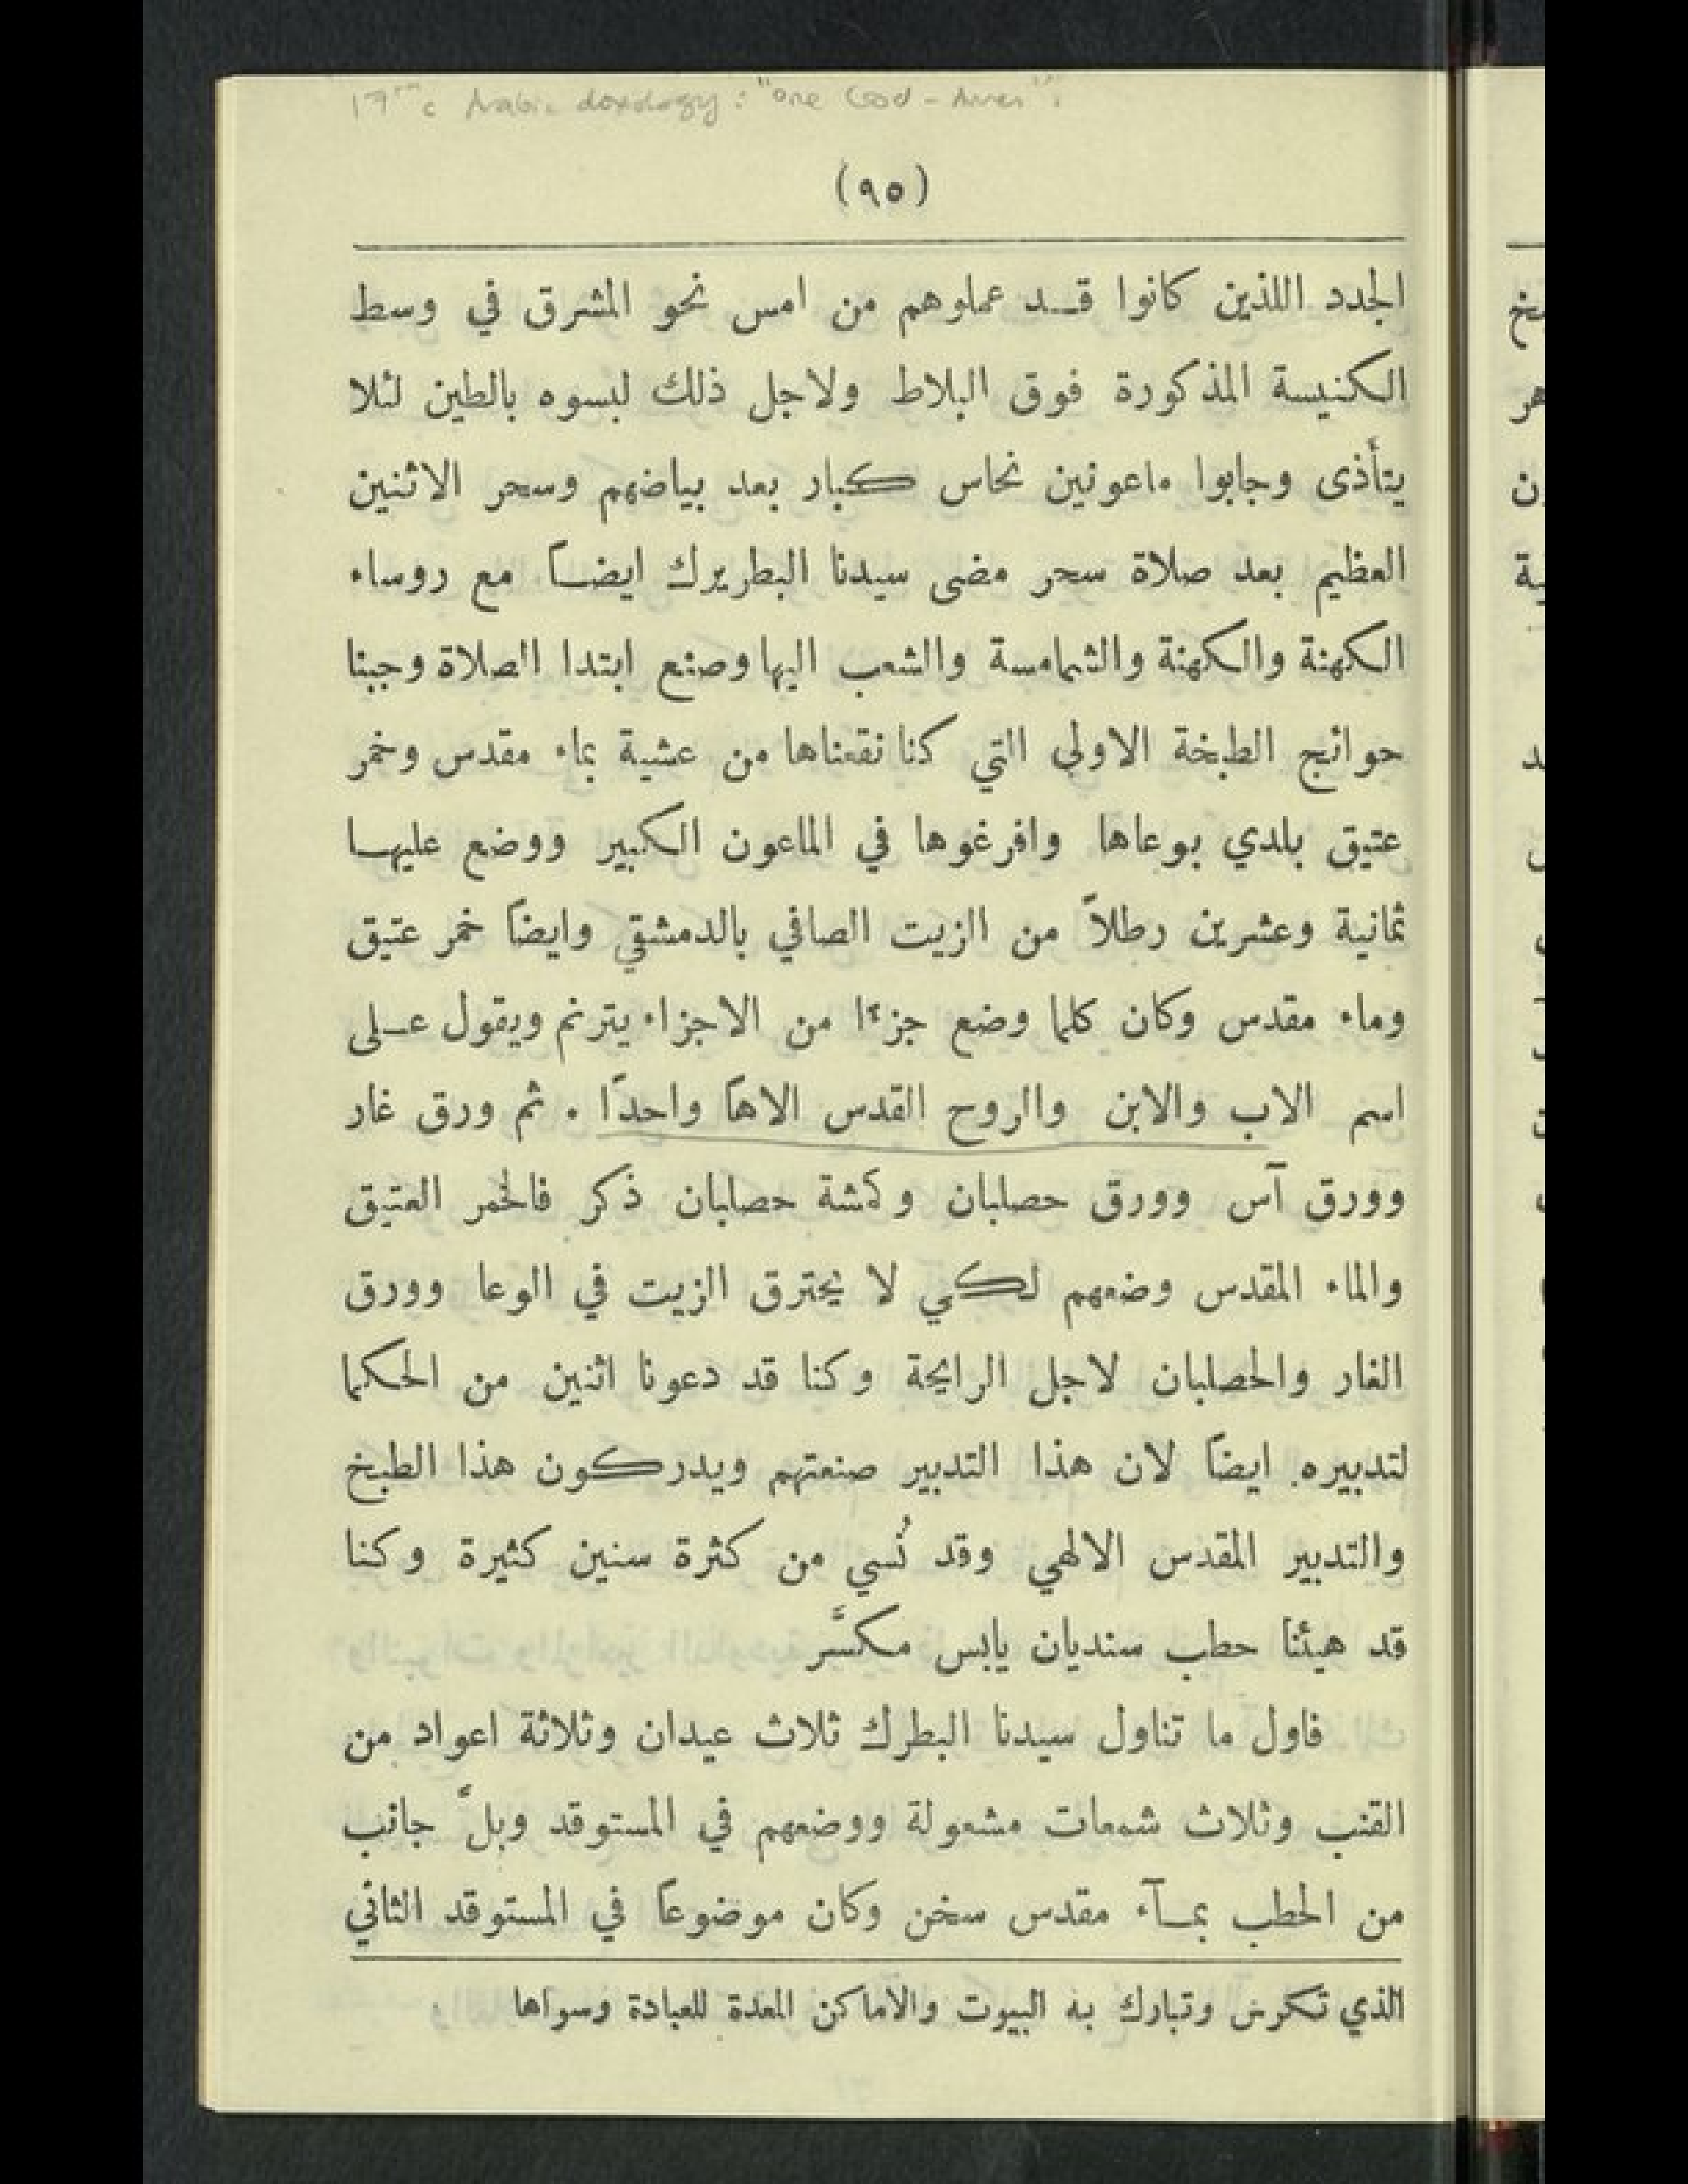 17th c Arabic doxology: "One God - Amen".
(٩٥)
الجدد اللذين كانوا قـد عملوهم من امس نحو المشرق في وسط
الكنيسة المذكورة فوق البلاط ولاجل ذلك لبسوه بالطين لئلا
يتأذى وجابوا ماعونين نحاس كبار بعد بياضهم وسحر الاثنين
العظيم بعد صلاة سحر مضى سيدنا البطريرك ايضـاً مع روساء
الكهنة والكهنة والشمامسة والشعب اليها وصنع ابتدا الصلاة وجبنا
حوائج الطبخة الاولى التي كنا نقعناها من عشية بماء مقدس وخمر
عتيق بلدي بوعاها وافرغوها في الماعون الكبير ووضع عليهـا
ثمانية وعشرين رطلاً من الزيت الصافي بالدمشقي وايضاً خمر عتيق
وماء مقدس وكان كلما وضع جزءًا من الاجزاء يترنم ويقول عـلى
اسم الاب والابن والروح القدس الاهاً واحدًا . ثم ورق غار
وورق آس وورق حصلبان وكمشة حصلبان ذكر فالخمر العتيق
والماء المقدس وضعهم لكي لا يحترق الزيت في الوعا وورق
الغار والحصلبان لاجل الرايحة وكنا قد دعونا اثنين من الحكما
لتدبيره. ايضاً لان هذا التدبير صنعتهم ويدركون هذا الطبخ
والتدبير المقدس الالهي وقد نُسي من كثرة سنين كثيرة وكنا
قد هيئنا حطب سنديان يابس مكسَّر
فاول ما تناول سيدنا البطرك ثلاث عيدان وثلاثة اعواد من
القنب وثلاث شمعات مشعولة ووضعهم في المستوقد وبلَّ جانب
من الحطب بمـآء مقدس سخن وكان موضوعاً في المستوقد الثاني
الذي تكرس وتبارك به البيوت والاماكن المعدة للعبادة وسواها